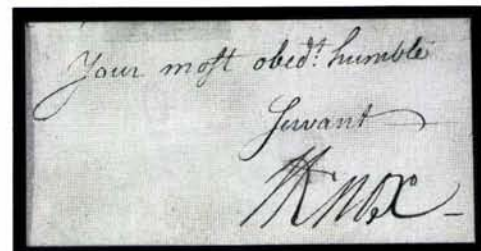 Your moſt obedt. humble
Servant
HKnox